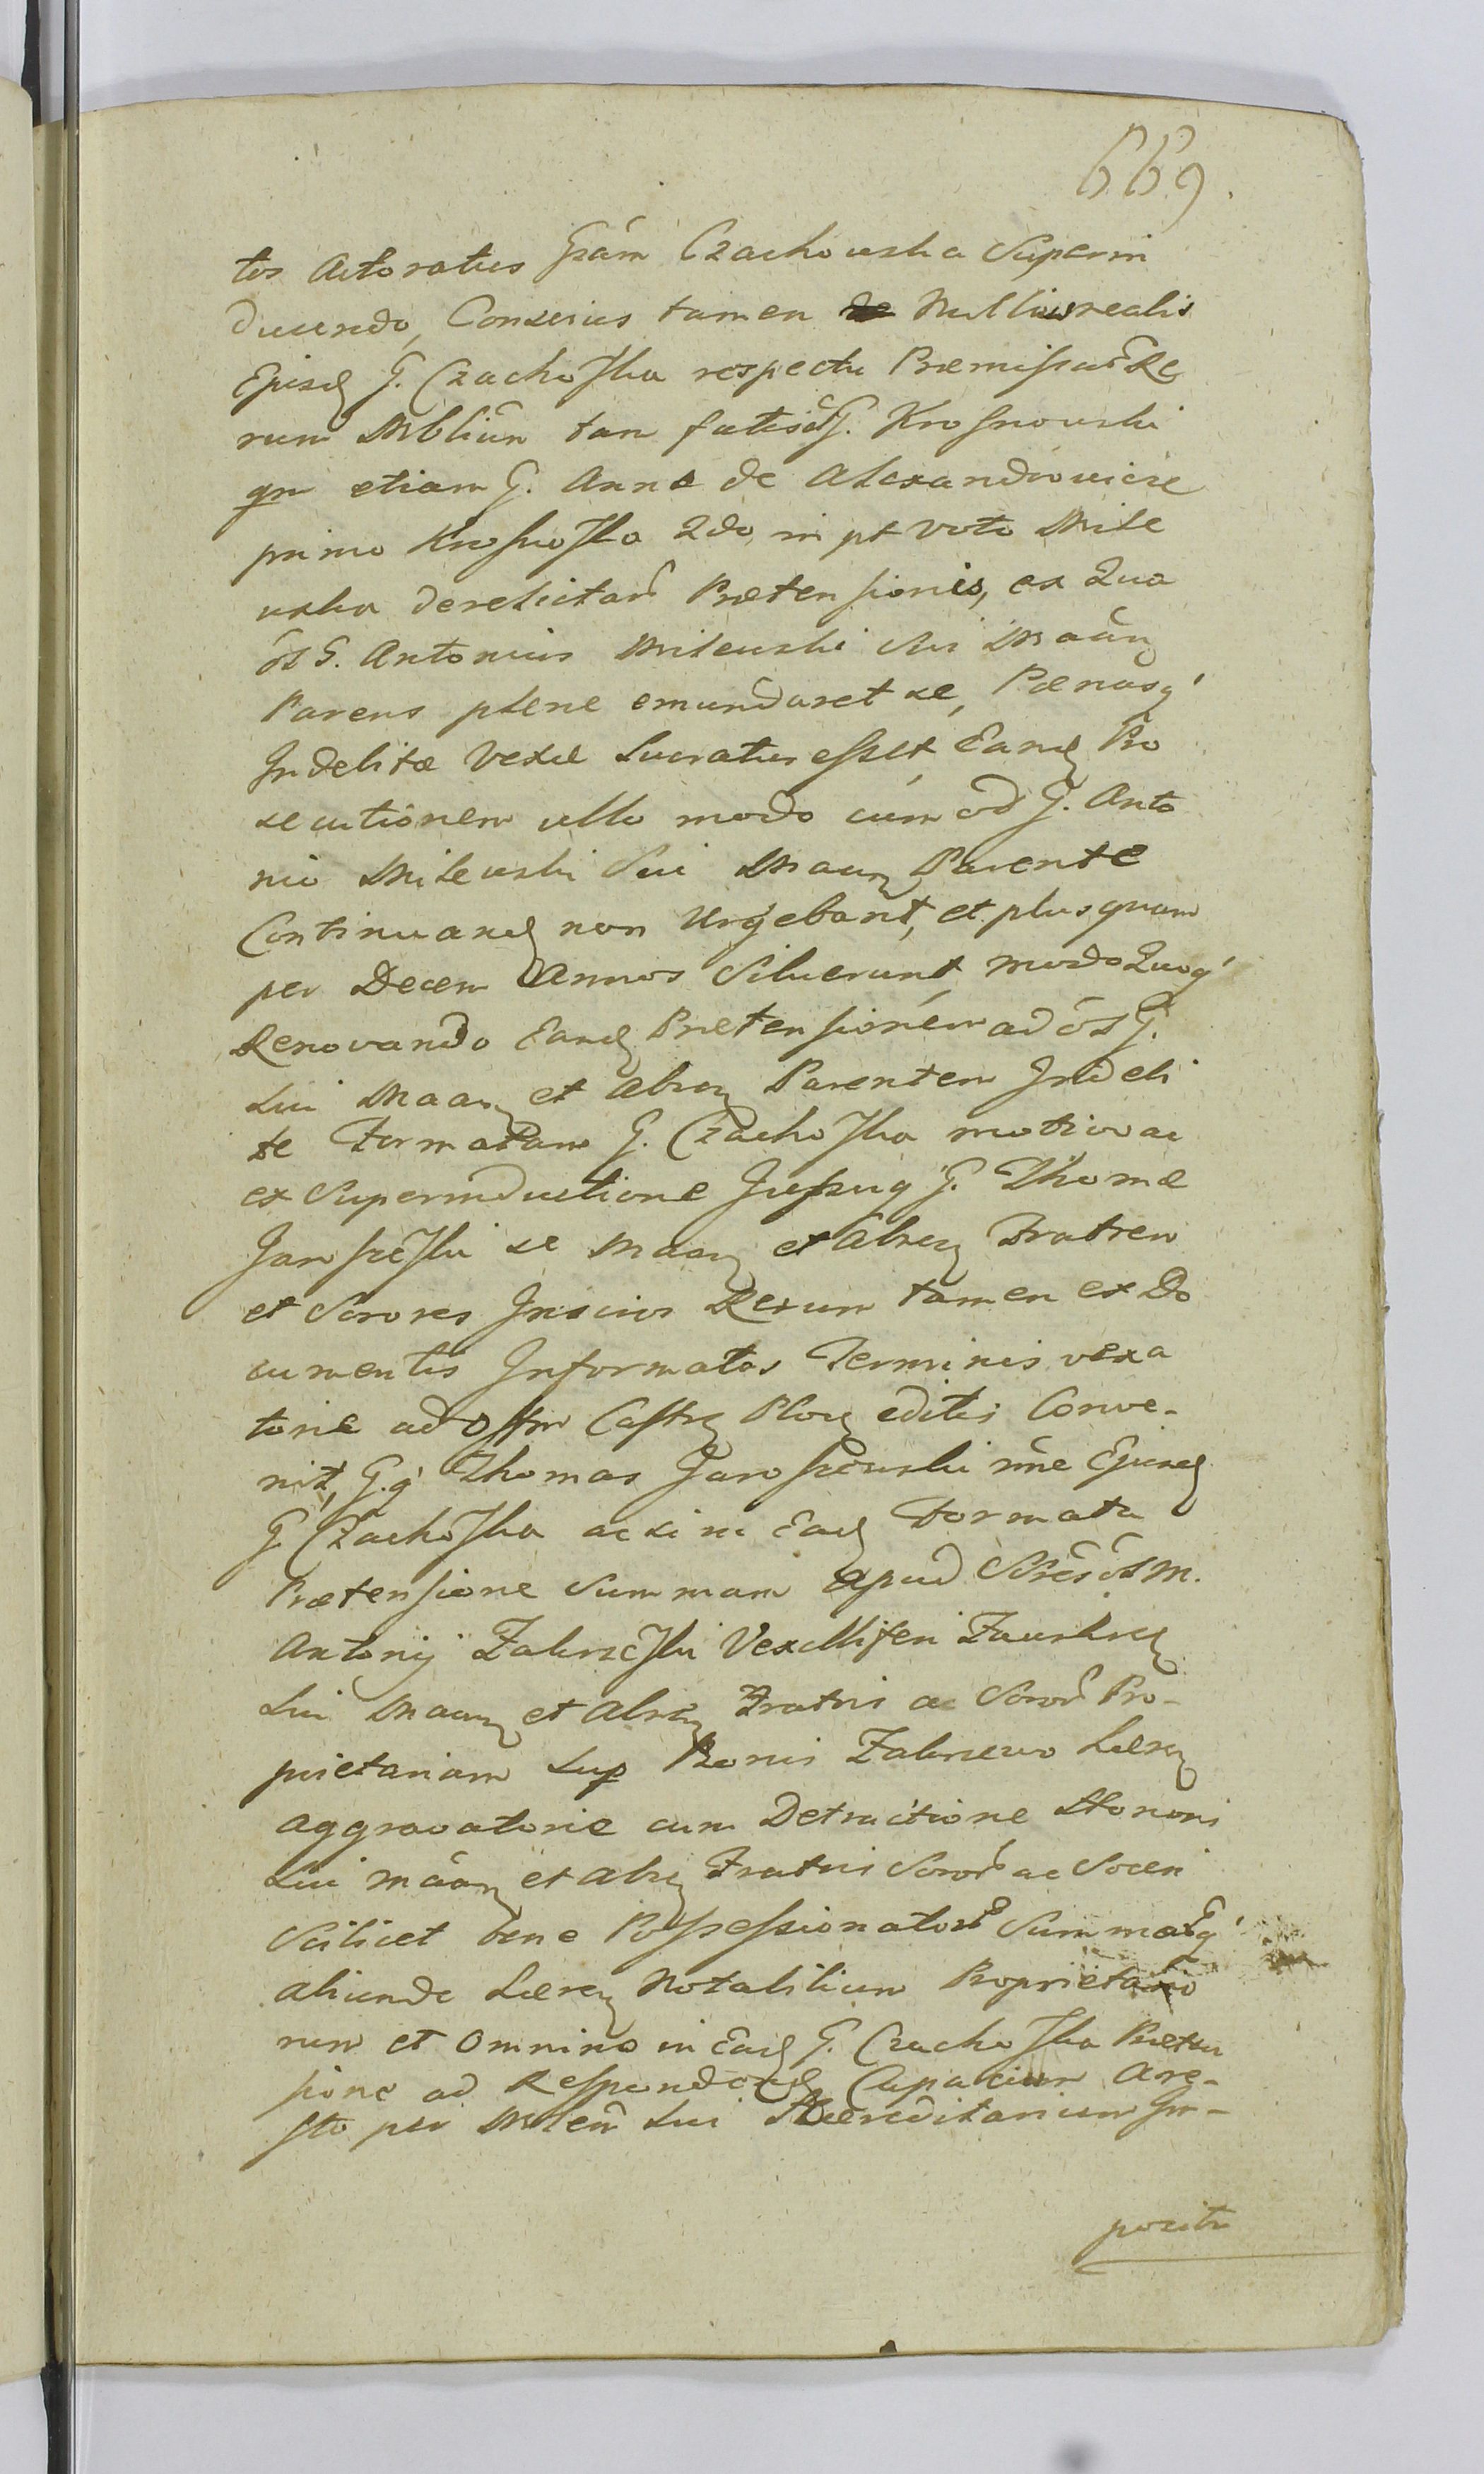 669.
tos Actoratus Gsám Czachowska Superin
ducendo, Conscius tamen de Nullius realis
Ejusd G. Czachoſka respectu Præmissar Re
rum Mbliūm tam fatis G. Krosnowski
qm etiam G. Anna de Alexandrowicze
primo Krosnoſka 2do, in pt voto Mile
wska derelictar Prætensionis, ex Qua
ōs G. Antonius Milewski Sui Maān
Parens plene emundaret se, Pœnasq'
Indebitæ Vexæ Lucratus esset, Eand Pro
secutionem ullo modo cúm ōd G. Anto
nio Milewski Sui Maan Parente
Continuand non Urgebant, et plus quam
per Decem Annos Siluerunt, modo Quoq'
Renovando Eand Prætensionem ad ōs G.
Sui Maan et Abrn Parentem Indebi
te Formatam G. Czachoſka motivo ac
ex Superinductione Jussuq G. Thomæ
Jaroszeſki se Maan et Abrn Fratrem
et Sorores Inscios Rerum tamen ex Do
cumentis Informatos Terminis vexa
torie ad Offm Castr Ploc editis Conve-
nit, G.q' Thomas Jaroszewski nne Ejusd
G Czachoſka ac si in Ead Formata
Prætensione Summam apud Sſres ōs M.
Antonij Zaborzeſki Vexilliferi Zawskrz
Sui Maan et Abrn Fratris ac Soror Pro-
prietariam Sup Bonis Zaborzewo Hærn
aggravatorie cum Detractione Honori
Sui máan et Abrn Fratris Soror ac Soceri
Scilicet bene Possessionator Summarq'
aliunde Hærn Notabilium Proprietario
rum et Omnino in Ead G. Czachoſka Præten
sione ad Respondend Capacium Are-
sto per Milem Sui Hæreditarium Im-
positu